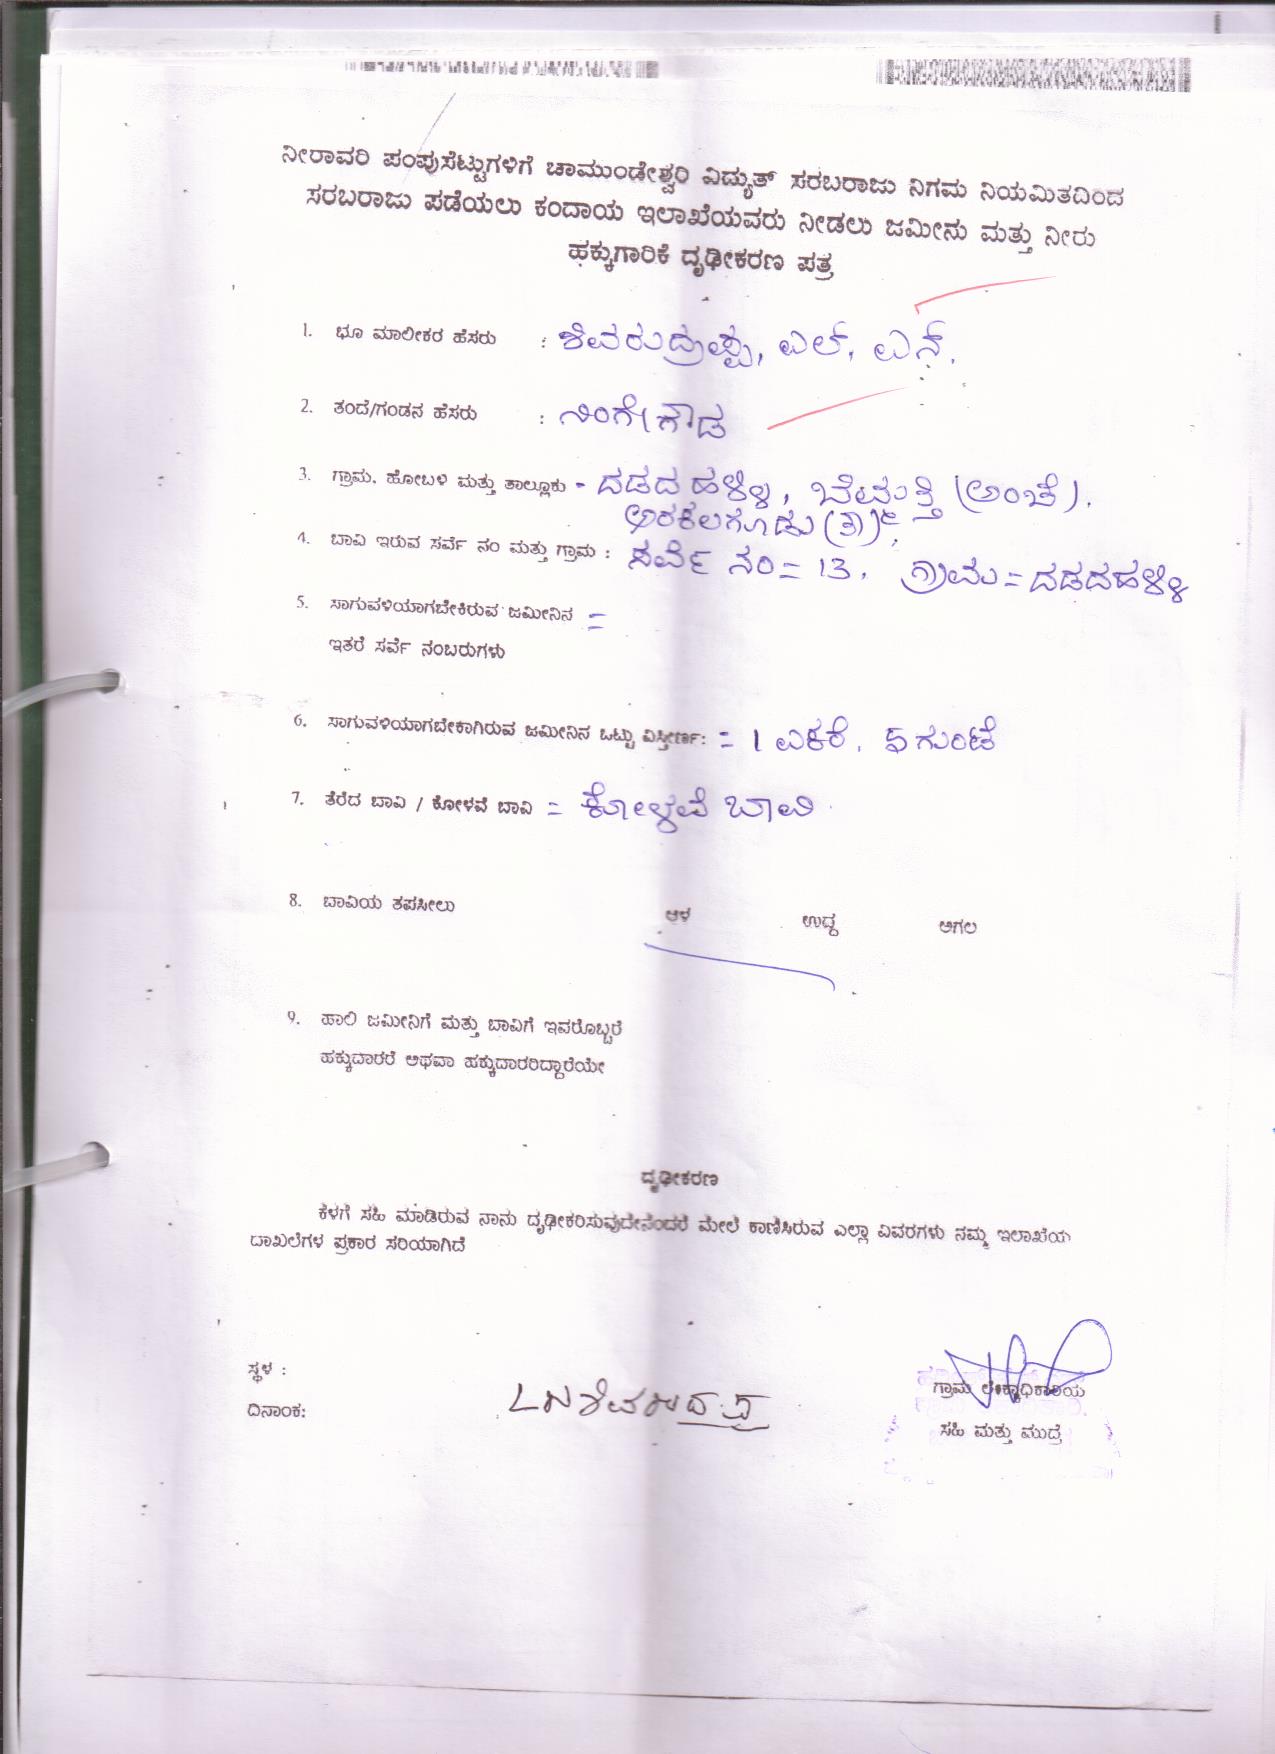 ನೀರಾವರಿ ಪಂಪುಸೆಟ್ಟುಗಳಿಗೆ ಚಾಮುಂಡೇಶ್ವರಿ ವಿದ್ಯುತ್ ಸರಬರಾಜು ನಿಗಮ ನಿಯಮಿತದಿಂದ
ಸರಬರಾಜು ಪಡೆಯಲು ಕಂದಾಯ ಇಲಾಖೆಯವರು ನೀಡಲು ಜಮೀನು ಮತ್ತು ನೀರು
ಹಕ್ಕುಗಾರಿಕೆ ದೃಢೀಕರಣ ಪತ್ರ
1. ಭೂ ಮಾಲೀಕರ ಹೆಸರು : ಶಿವರುದ್ರಪ್ಪ, ಎಲ್. ಎನ್.
2. ತಂದೆ/ಗಂಡನ ಹೆಸರು : ನಿಂಗೇಗೌಡ
3. ಗ್ರಾಮ, ಹೋಬಳಿ ಮತ್ತು ತಾಲ್ಲೂಕು - ದಡದಹಳ್ಳಿ, ಬೆಮತ್ತಿ (ಅಂಚೆ).
ಅರಕಲಗೂಡು (ತಾ),
4. ಬಾವಿ ಇರುವ ಸರ್ವೆ ನಂ ಮತ್ತು ಗ್ರಾಮ : ಸರ್ವೆ ನಂ = 13, ಗ್ರಾಮ = ದಡದಹಳ್ಳಿ
5. ಸಾಗುವಳಿಯಾಗಬೇಕಿರುವ ಜಮೀನಿನ =
ಇತರೆ ಸರ್ವೆ ನಂಬರುಗಳು
6. ಸಾಗುವಳಿಯಾಗಬೇಕಾಗಿರುವ ಜಮೀನಿನ ಒಟ್ಟು ವಿಸ್ತೀರ್ಣ: = 1 ಎಕರೆ, 5 ಗುಂಟೆ
7. ತೆರೆದ ಬಾವಿ / ಕೋಳವೆ ಬಾವಿ = ಕೋಳವೆ ಬಾವಿ
8. ಬಾವಿಯ ತಪಸೀಲು ಆಳ ಉದ್ದ ಅಗಲ
9. ಹಾಲಿ ಜಮೀನಿಗೆ ಮತ್ತು ಬಾವಿಗೆ ಇವರೊಬ್ಬರೆ
ಹಕ್ಕುದಾರರೆ ಅಥವಾ ಹಕ್ಕುದಾರರಿದ್ದಾರೆಯೇ
ದೃಢೀಕರಣ
ಕೆಳಗೆ ಸಹಿ ಮಾಡಿರುವ ನಾನು ದೃಢೀಕರಿಸುವುದೇನೆಂದರೆ ಮೇಲೆ ಕಾಣಿಸಿರುವ ಎಲ್ಲಾ ವಿವರಗಳು ನಮ್ಮ ಇಲಾಖೆಯ
ದಾಖಲೆಗಳ ಪ್ರಕಾರ ಸರಿಯಾಗಿದೆ
ಸ್ಥಳ :
ದಿನಾಂಕ:
LN ಶಿವರುದ್ರಪ್ಪ
ಗ್ರಾಮ ಲೆಕ್ಕಾಧಿಕಾರಿಯ
ಸಹಿ ಮತ್ತು ಮುದ್ರೆ